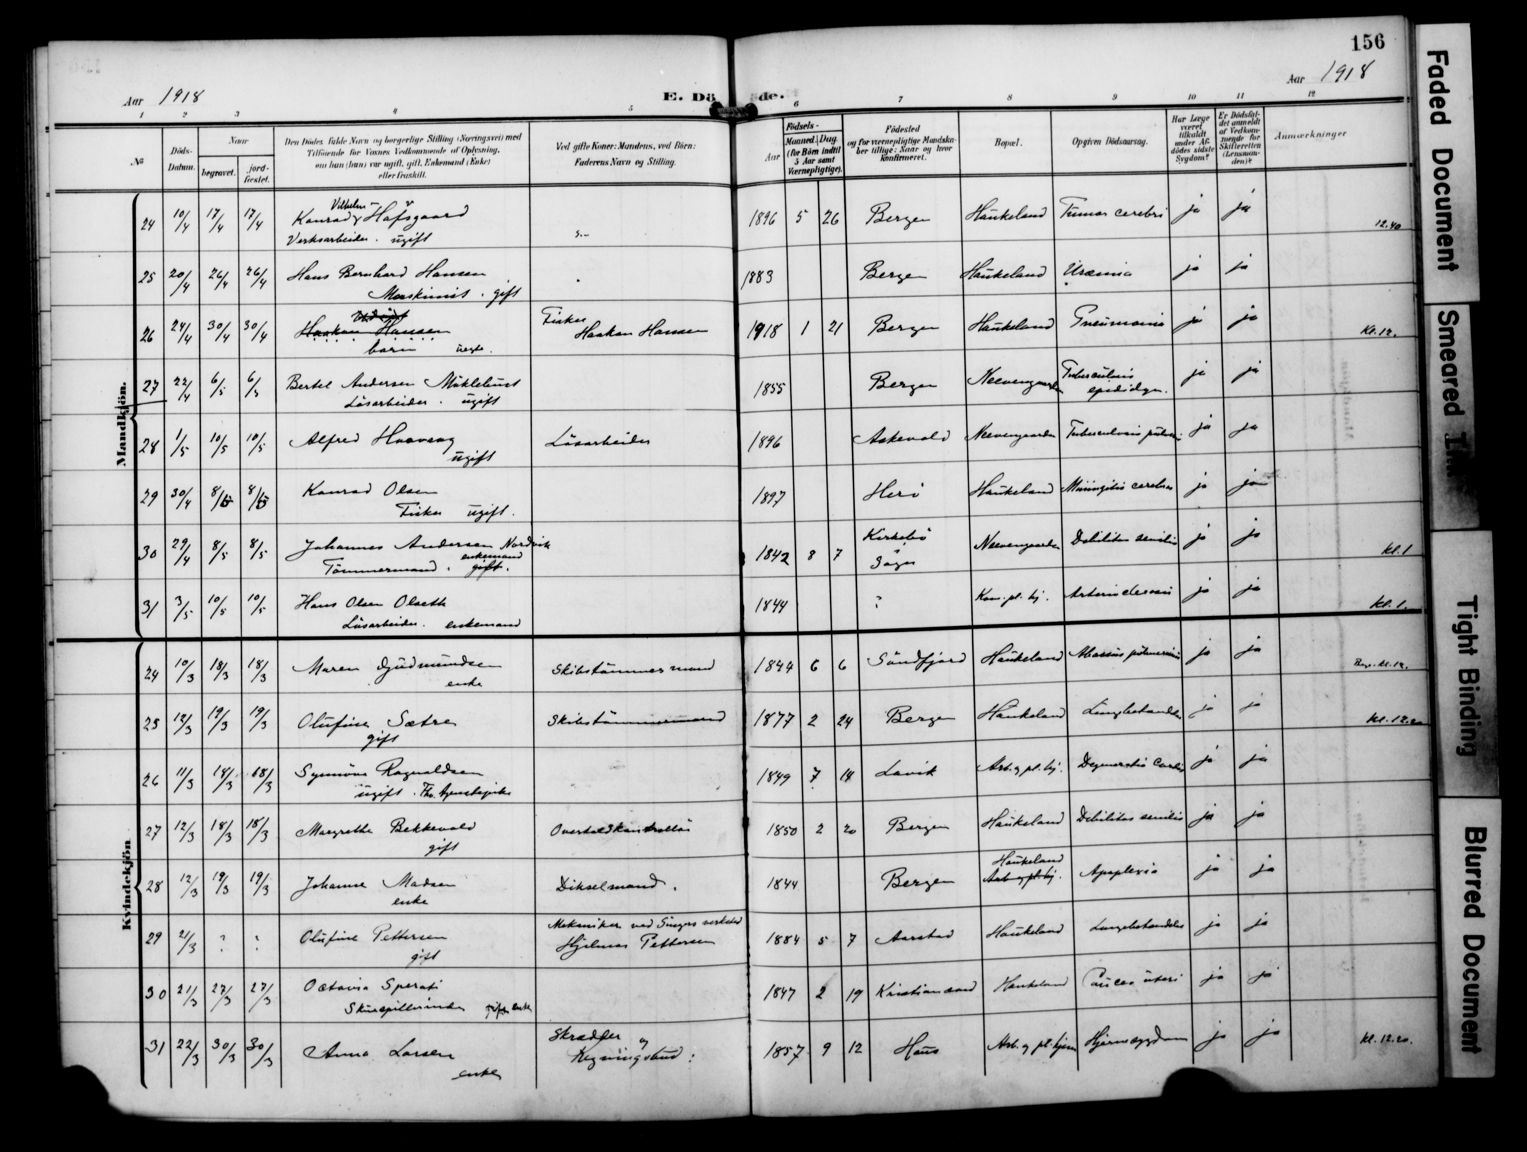 156
Aar 1918
E. Döde.
Aar 1918
1 2 3 4 5 6 7 8 9 10 11 12
№
Döds-Datum.
Naar
begravet.
jord-fæstet.
Den Dödes fulde Navn og borgerlige Stilling (Næringsvei) med
Tilföiende for Voxnes Vedkommende af Oplysning,
om han (hun) var ugift, gift, Enkemand (Enke)
eller fraskilt.
Ved gifte Koner: Mandens, ved Börn:
Faderens Navn og Stilling.
Födsels-
Aar
Maaned. Dag.
(for Börn indtil
5 Aar samt
Værnepligtige).
Födested
og for værnepligtige Mandska-
ber tillige: Naar og hvor
Konfirmeret.
Bopæl.
Opgiven Dödsaarsag.
Har Læge
været
tilkaldt
under Af-
dödes sidste
Sygdom?
Er Dödsfal-
det anmeldt
af Vedkom-
mende for
Skifteretten
(Lensman-
den)?
Anmærkninger
Mandkjön.
24 10/4 17/4 17/4 Konrad Vilhelm Hofsgaard 1896 5 26 Bergen Haukeland Tumor cerebri ja ja 12.40
Verksarbeider. ugift
25 20/4 26/4 26/4 Hans Bernhard Hansen 1883 Bergen Haukeland Uræmia ja ja
Maskinist. gift
26 24/4 30/4 30/4 Haakon Hansen Fisker Haakon Hansen 1918 1 21 Bergen Haukeland Pneumonia ja ja Kl. 12.
barn
27 22/4 6/5 6/5 Bertel Andersen Möklebust 1855 Bergen Neevengaarden Tuberculosis epididym. ja ja
Lösarbeider. ugift
28 1/5 10/5 10/5 Alfred Haavsog Lösarbeider 1896 Askevold Neevengaarden Tuberculosis pulm. ja ja
ugift
29 30/4 8/5 8/5 Konrad Olsen 1897 Herö Haukeland Miningitis cerebri ja ja
Fisker ugift.
30 29/4 8/5 8/5 Johannes Andersen Nordvik 1842 8 7 Kirkebö i Sogn Neevengaarden Debilitas senilis ja ja Kl. 1
Tömmermand. enkemand gift.
31 3/5 10/5 10/5 Hans Olsen Olseth 1844 ? Kom. pl. hj. ja ja Kl. 1.
Lösarbeider. enkemand
Kvindekjön
24 10/3 18/3 18/3 Maren Gudmundsen Skibstömmermand 1844 6 6 Söndfjord Haukeland ja ja Kl. 12.
enke
25 12/3 19/3 19/3 Olufine Sætre Skibstömmermand 1877 2 24 Bergen Haukeland Lungebetændelse ja ja Kl. 12.20
gift
26 11/3 18/3 18/3 Synnöve Ragnvaldsen 1849 7 14 Lavik Arb. og pl. hj. ja ja
ugift.
27 12/3 18/3 18/3 Margrethe Bekkevold 1850 2 20 Bergen Haukeland Debilitas senilis ja ja
gift
28 12/3 19/3 19/3 Johanne Madsen Dikselmand. 1844 Bergen Haukeland Arb og pl. hj. Apoplexia ja ja
enke
29 21/3 ? ? Olufine Pettersen Mekaniker ved Singers verksted 1884 5 7 Aarstad Haukeland Lungebetændelse ja ja
gift Hjelmar Pettersen
30 21/3 27/3 27/3 Octavia Sperati 1847 2 19 Kristiansand Haukeland Cancer uteri ja ja
Skuespillerinde gift enke
31 22/3 30/3 30/3 Anna Larsen Skrædder og Regningsbud: 1857 9 12 Haus Arb. og pl. hjem Hjernesygdom ja ja Kl. 12.20.
enke
Faded Document
Smeared Ink
Tight Binding
Blurred Document